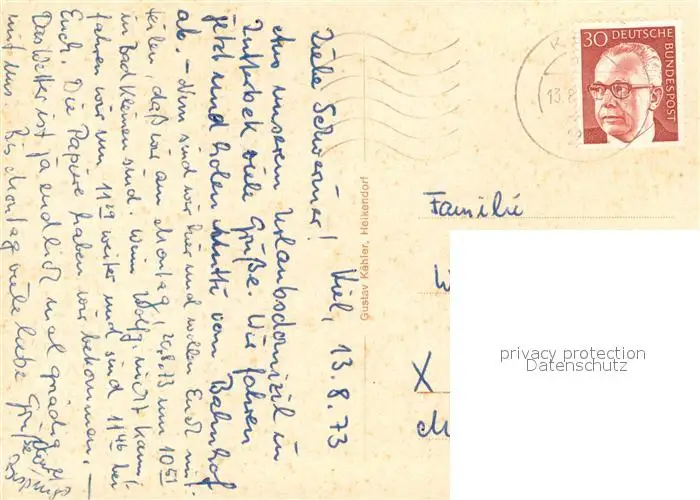 Kiel, 13.8.73
Liebe Schweriner!
Aus unserem Urlaubsdomizil in
Zutterbek viele Grüße. Wir fahren
jetzt und holen Mutti vom Bahnhof
ab. - Nun sind wir hier und wollen Euch mit-
teilen, daß wir am Montag, 20.8.73 um 10 51
in Bad Kleinen sind. Wenn Wolfg. nicht kann,
fahren wir um 11 29 weiter und sind 11 46 bei
Euch. Die Papiere haben wir bekommen. -
Das Wetter ist ja endlich mal gnädig
mit uns. Bis Montag viele liebe Grüße
Gustav Kähler, Heikendorf
30 DEUTSCHE BUNDESPOST
13.8
Familie
W
X
M
privacy protection
Datenschutz